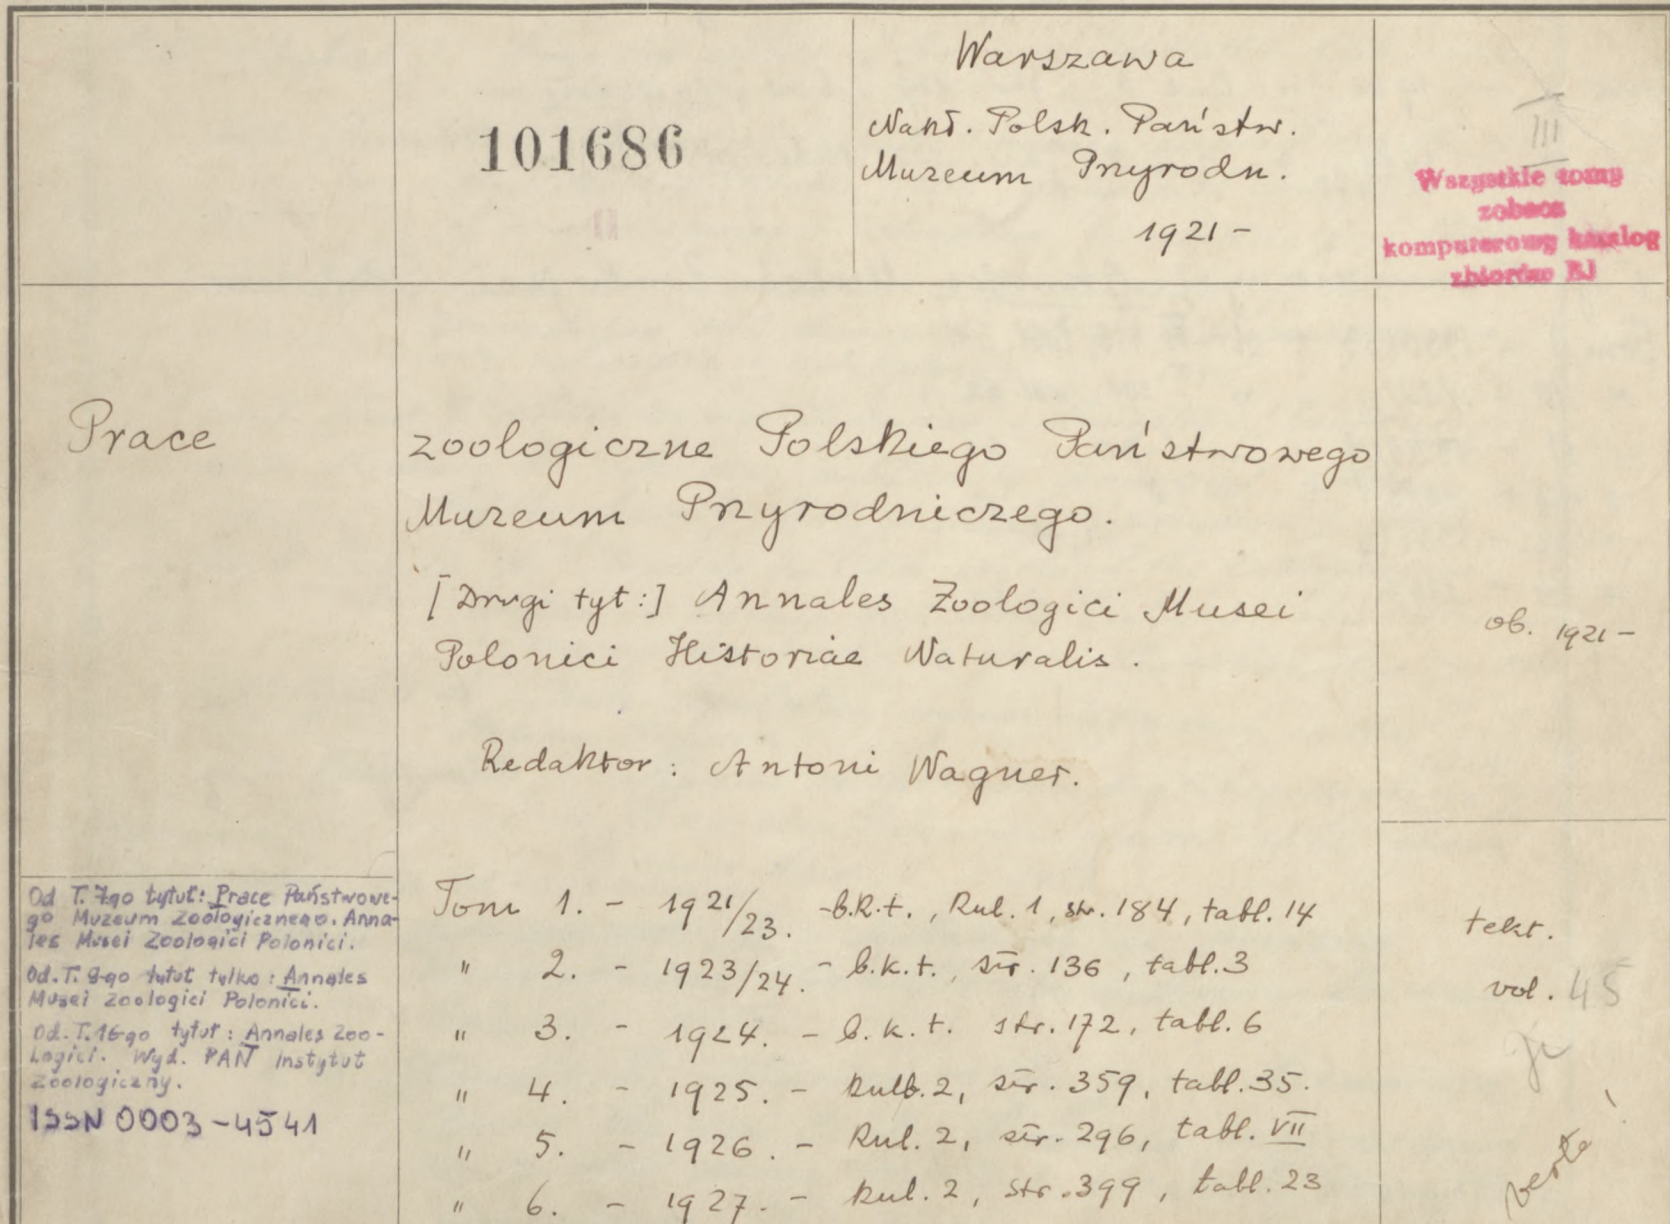 101686
Warszawa
Nakł. Polsk. Państw.
Muzeum Przyrodn.
1921 -
III
Wszystkie tomy
zobacz
komputerowy katalog
zbiorów BJ
Prace
zoologiczne Polskiego Państwowego
Muzeum Przyrodniczego.
[Drugi tyt:] Annales Zoologici Musei
Polonici Historiae Naturalis.
ob. 1921 -
Redaktor: Antoni Wagner.
Od T. 7-go tytuł: Prace Państwowe-
go Muzeum Zoologicznego. Anna-
les Musei Zoologici Polonici.
Od. T. 9-go tytuł tylko: Annales
Musei Zoologici Polonici.
Od. T. 16-go tytuł: Annales Zoo-
logici. Wyd. PAN Instytut
Zoologiczny.
ISSN 0003-4541
Tom 1. - 1921/23. - b.k.t., Rul. 1, str. 184, tabl. 14
" 2. - 1923/24. - b.k.t., str. 136, tabl. 3
" 3. - 1924. - b.k.t. str. 172, tabl. 6
" 4. - 1925. - 2, str. 359, tabl. 35.
" 5. - 1926. - Rul. 2, str. 296, tabl. VII
" 6. - 1927. - Rul. 2, str. 399, tabl. 23
tekt.
vol. 45